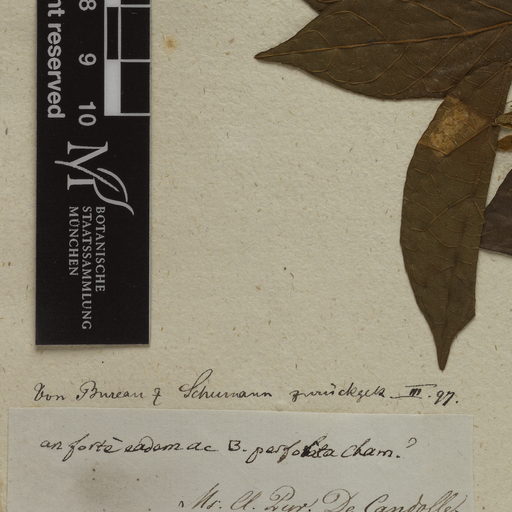 nt reserved
8 9 10
BOTANISCHE
STAATSSAMMLUNG
MÜNCHEN
Von Bureau & Schumann zurückgek. III. 97.
an forte eadem ac B. perfoliata Cham.?
De Candolle